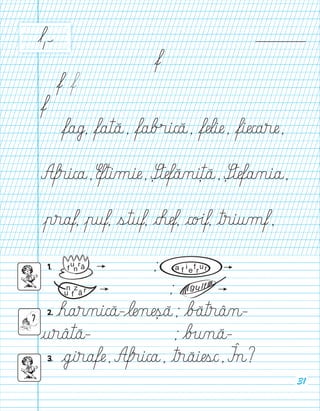 f
f
f f
f
fag, fată, fabrică, felie, fiecare,
Africa, Eftimie, Ștefăniță, Ștefania,
praf, puf, stuf, chef, coif, triumf,
1.
2. harnică-leneșă; bătrân-
urâtă- ; bună-
3. girafe, Africa, trăiesc, În?
31